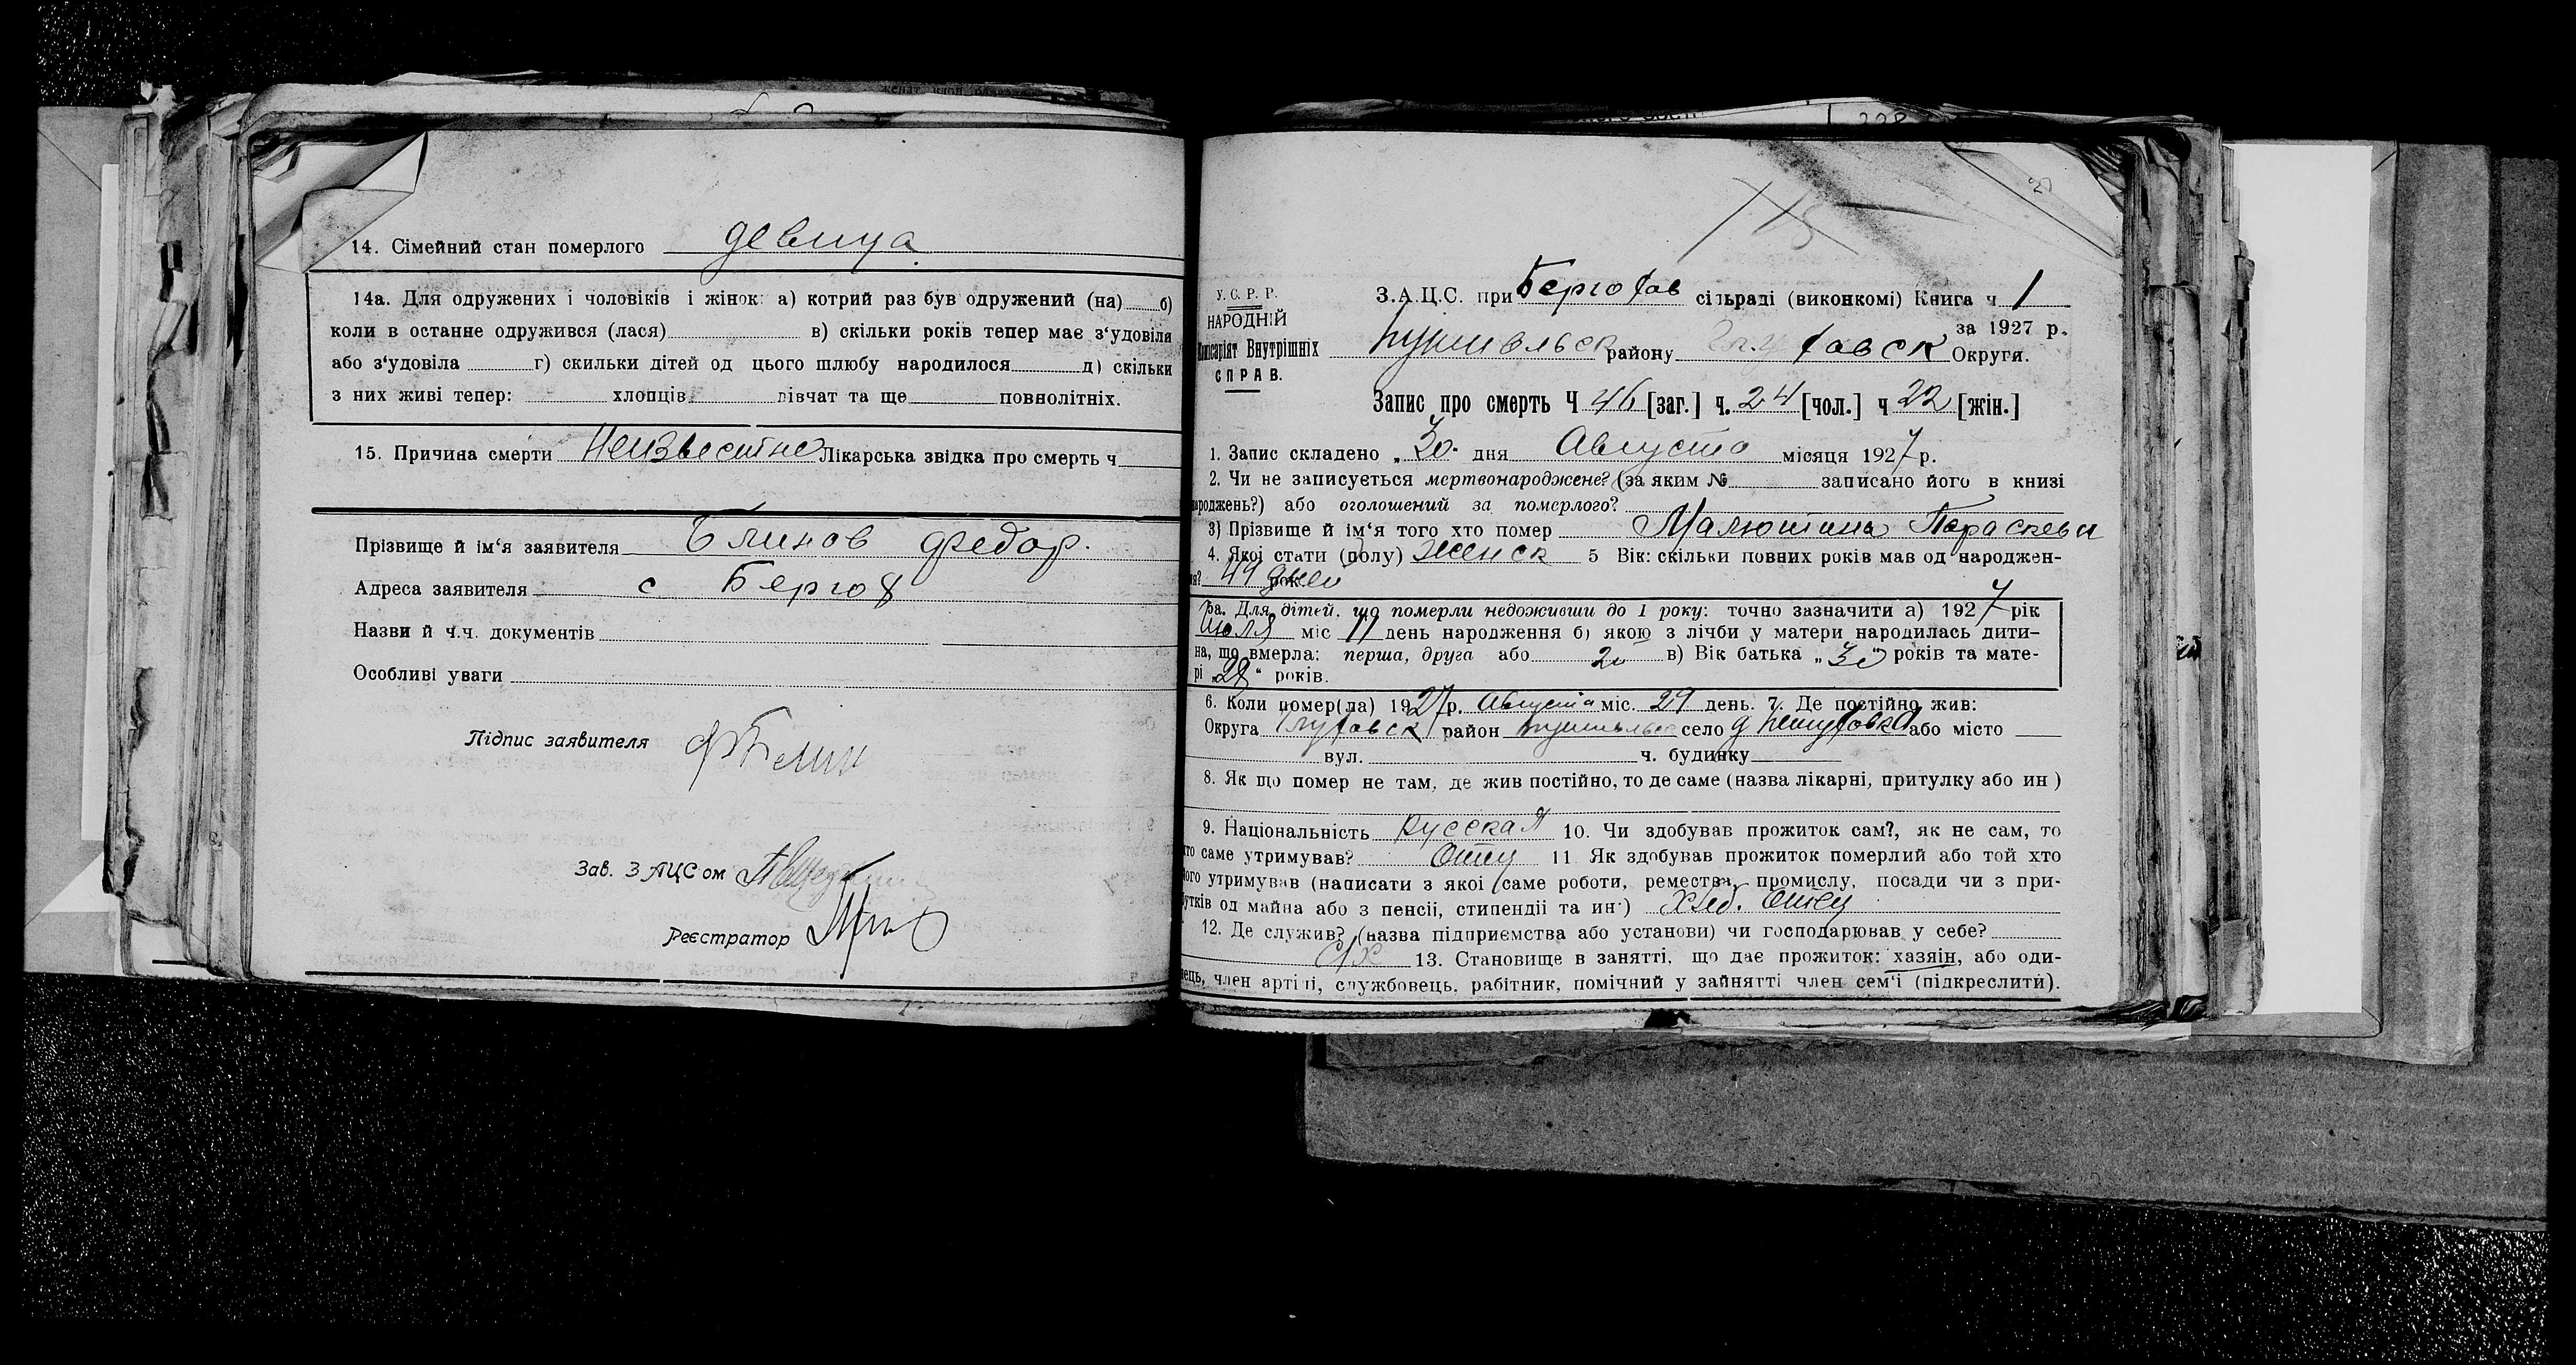 14. Сімейний стан померлого девица
14а. Для одружених і чоловіків і жінок: а) котрий раз був одружений (на) б)
коли в останне одружився (лася) в) скільки років тепер має з'удовіля
або з'удовіла г) скильки дітей од цього шлюбу народилося д) скільки
з них живі тепер: хлопців дівчат та ще повнолітніх.
15. Причина смерти Неизвестно Лікарська звідка про смерть ч
Прізвище й ім'я заявителя Блинов Федор.
Адреса заявителя с
Назви й ч.ч. документів
Особливі уваги
Підпис заявителя
Зав. ЗАЦСом
Реєстратор
У. С. Р. Р.
НАРОДНІЙ
Комісаріят Внутрішніх
СПРАВ.
З.А.Ц.С. при сільраді (виконкомі) Книга ч 1
за 1927 р.
району Округи.
Запис про смерть Ч 46 [заг.] ч. 24 [чол.] ч 22 [жін.]
1. Запис складено „30" дня Августа місяця 1927 р.
2. Чи не записується мертвонароджене? (за яким № записано його в книзі
народжень?) або оголошений за померлого?
3) Прізвище й ім'я того хто помер Малютина Параскева
4. Якоі стати (полу) Женск 5 Вік: скільки повних років мав од народжен-
ня? 49 дней рок
5а. Для дітей, що померли недоживши до 1 року: точно зазначити а) 1927 рік
Июля міс 11 день народження б) якою з лічби у матери народилась дити-
на, що вмерла: перша, друга або 2и в) Вік батька „30" років та мате-
рі „28" років.
6. Коли помер(ла) 1927 р. Августа міс. 29 день. 7. Де постійно жив:
Округа район село д або місто
вул. ч. будинку
8. Як що помер не там, де жив постійно, то де саме (назва лікарні, притулку або ин )
9. Національність Русская 10. Чи здобував прожиток сам?, як не сам, то
хто саме утримував? Отец 11 Як здобував прожиток померлий або той хто
його утримував (написати з якоі саме роботи, ремества, промислу, посади чи з при-
бутків од майна або з пенсіі, стипендіі та ин·) Хлеб. Отец
12. Де служив? (назва підприємства або установи) чи господарював у себе?
С/Х 13. Становище в занятті, що дає прожиток: хазяін, або оди-
нець, член артілі, службовець, рабітник, помічний у зайнятті член сем'ї (підкреслити).